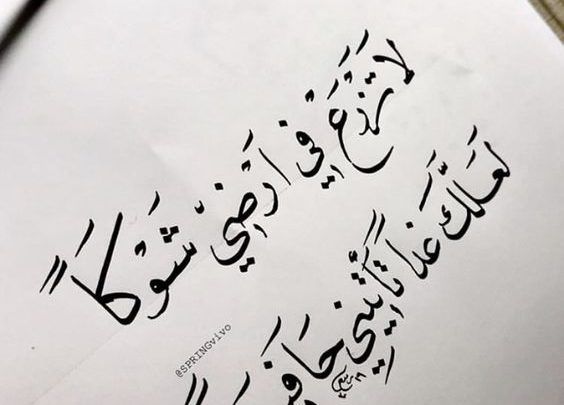 لَا تَزْرَعْ فِي أَرْضِي شَوْكَاً
لَعَلَّكَ غَداً تَأْتِينِي
@SPRINGvivo